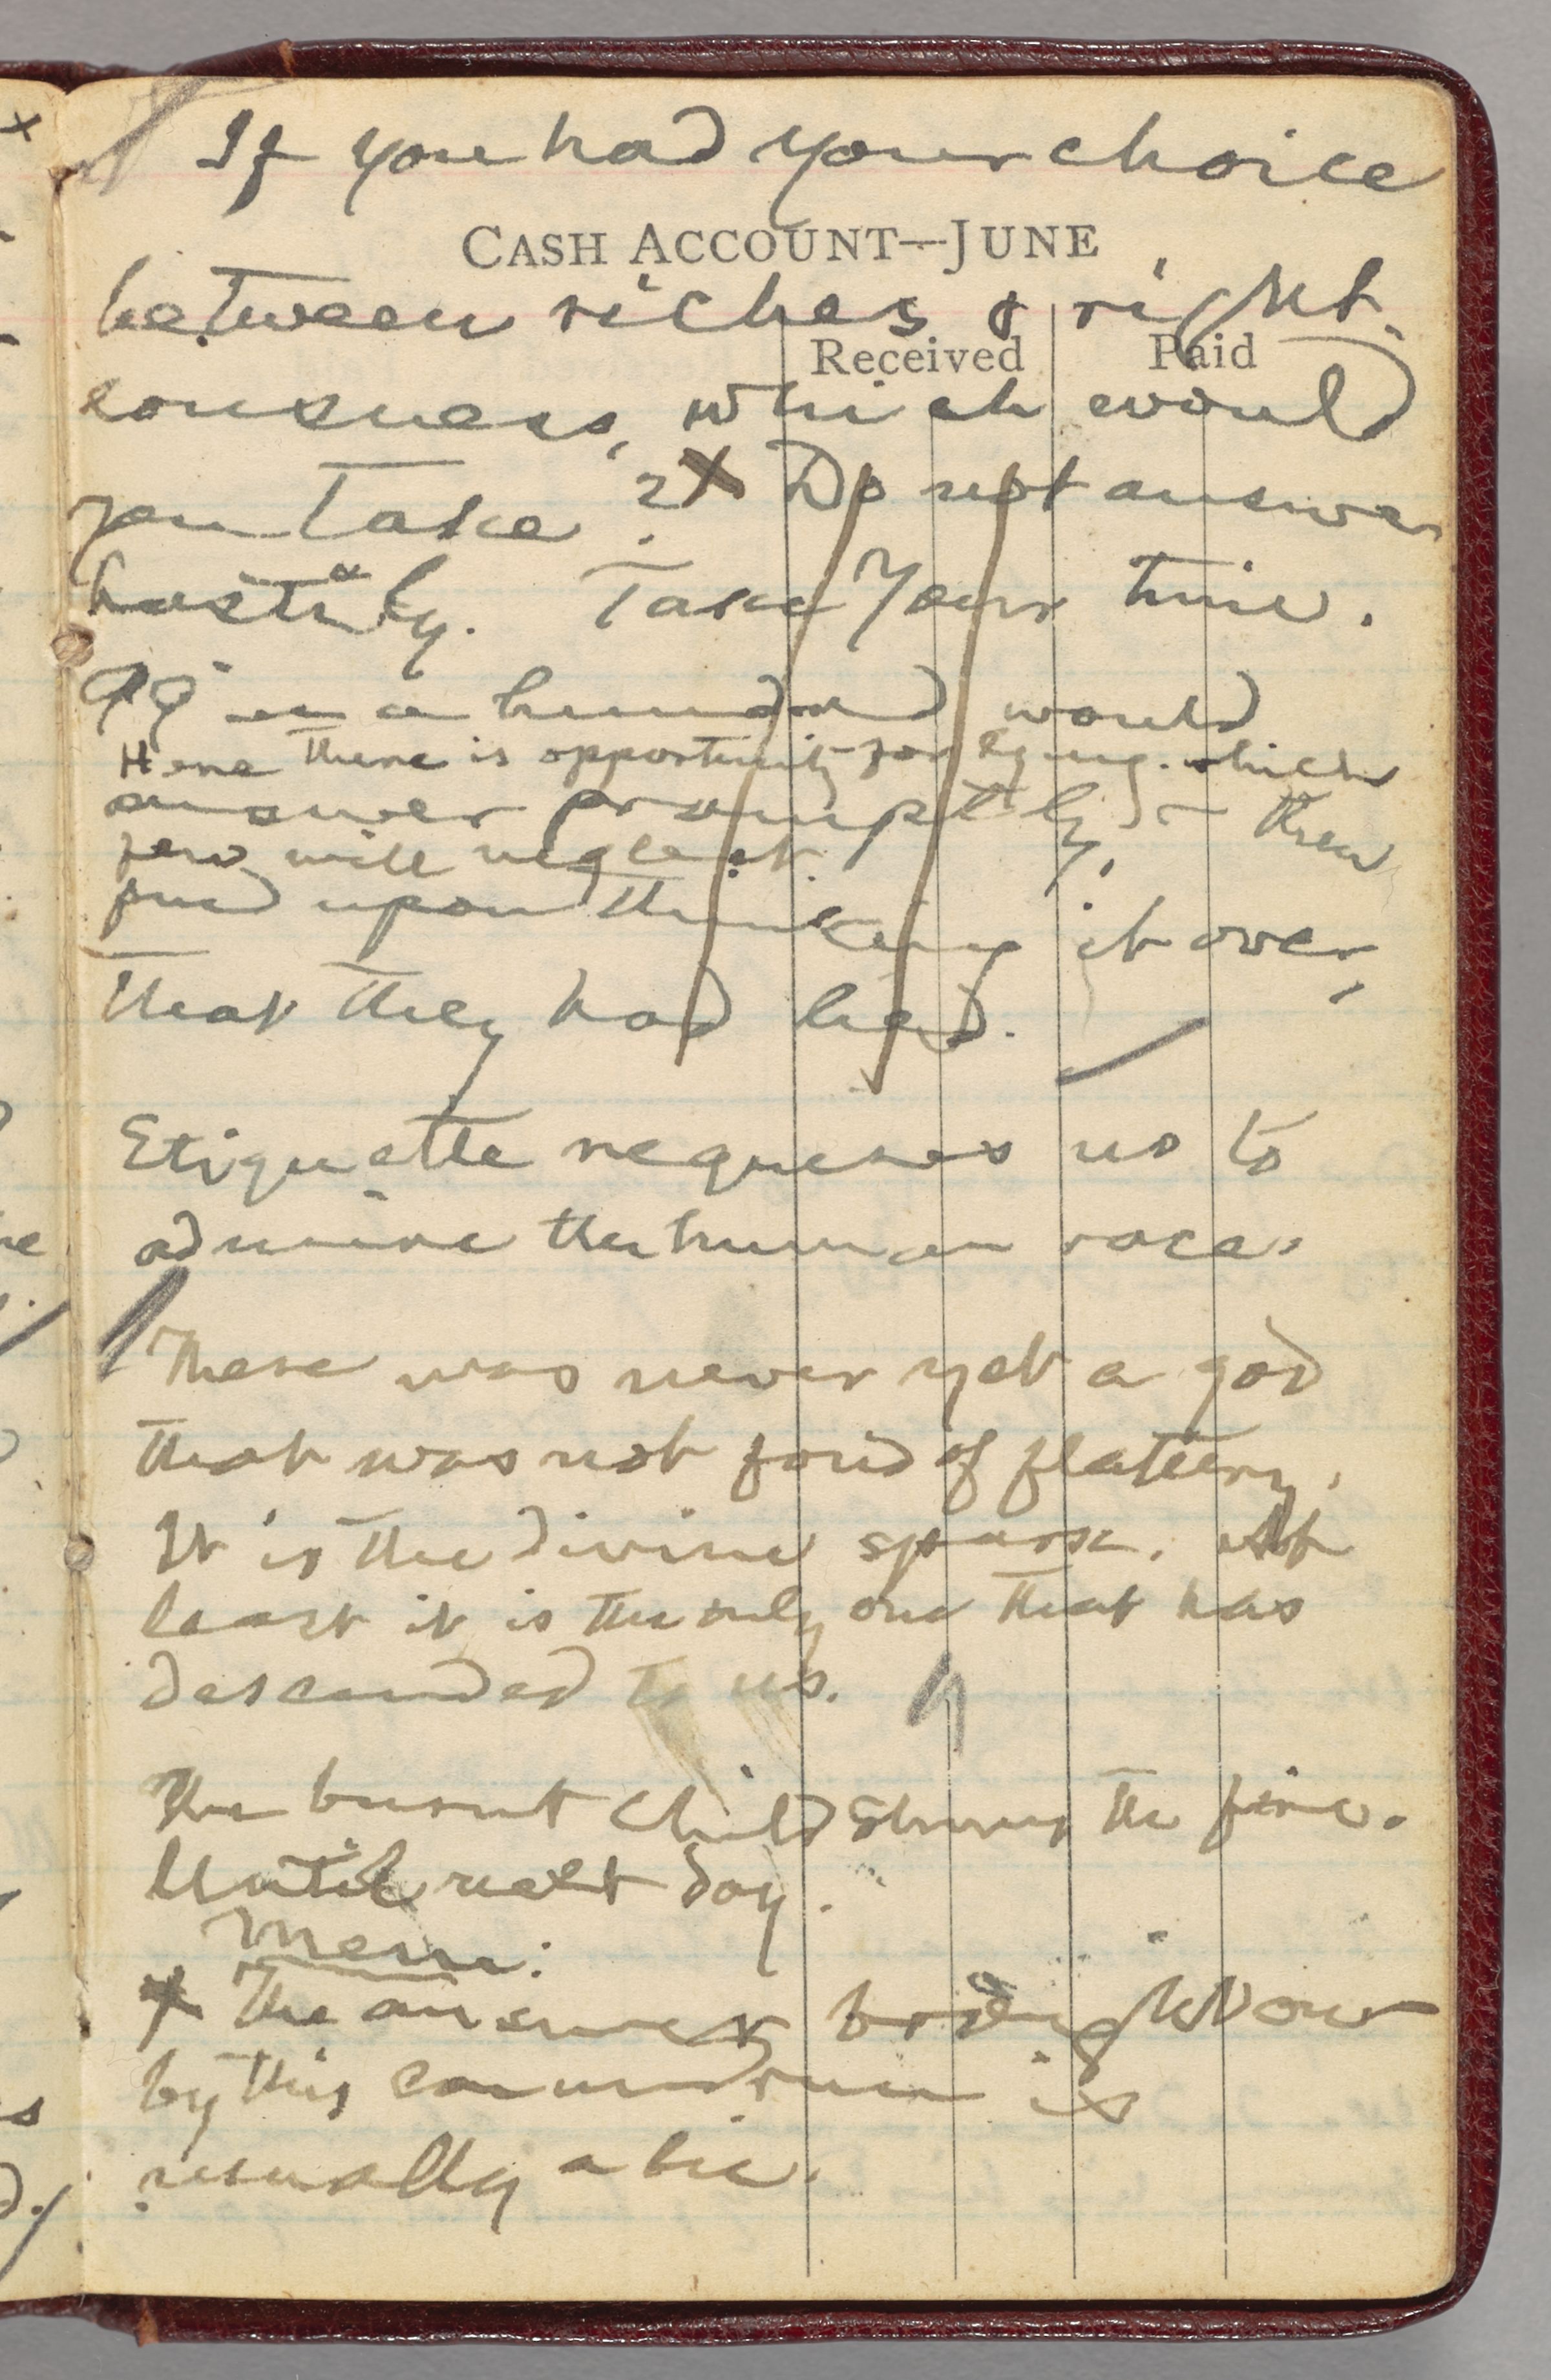 If you had your choice
CASH ACCOUNT—JUNE
between riches & right-
Received Paid
eousness, which would
you take? X Do not answer
hastily. Take your time.
99 in a hundred would
Here there is opportunity for lying which
answer promptly, — then
few will neglect.
find upon thinking it over,
that they had lied.
Etiquette requires us to
admire the human race.
There was never yet a god
that was not fond of flattery.
It is the divine spark. At
least it is the only one that has
descended to us.
The burnt child shuns the fire.
Until next day.
Mem:
X The answer brought out
by this conundrum is
usually a lie.